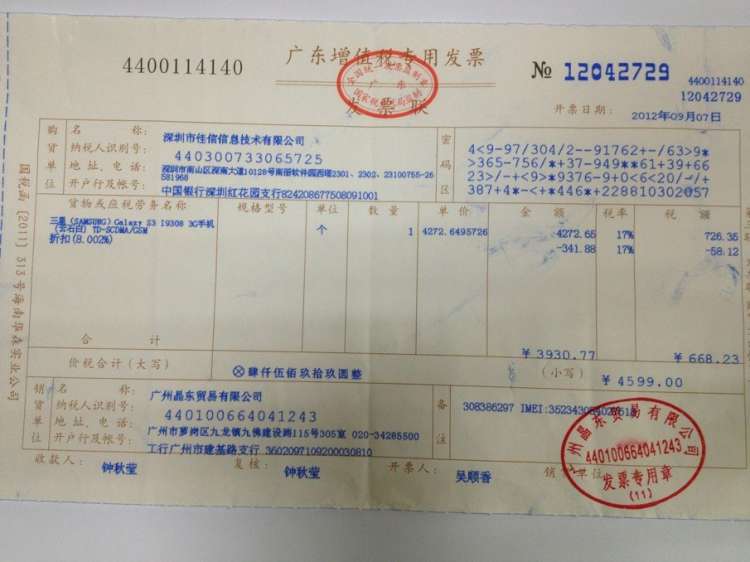 4400114140
广东增值税专用发票
№ 12042729
4400114140
12042729
全国统一发票监制章
广东
国家税务总局监制
发票联
开票日期: 2012年09月07日
购货单位
名 称: 深圳市佳信信息技术有限公司
纳税人识别号: 440300733065725
地址、电话: 深圳市南山区深南大道10128号南册软件园西塔2301、2302、23100755-26
581968
开户行及帐号: 中国银行深圳红花园支行824208677508091001
密码区
4<9-97/304/2--91762+-/63>9*
>365-756/*+37-949**61+39+66
23>/-+<9>9376-9+0<6<20/-/+
387+4*-<+*446*+228810302057
货物或应税劳务名称 规格型号 单位 数量 单价 金额 税率 税额
三星 (SAMSUNG) Galaxy S3 I9308 3G手机 个 1 4272.6495726 4272.65 17% 726.35
(云石白) TD-SCDMA/GSM
折扣(8.002%) -341.88 17% -58.12
合 计 ¥ 3930.77 ¥ 668.23
价税合计(大写) ⊗肆仟伍佰玖拾玖圆整 (小写) ¥ 4599.00
销货单位
名 称: 广州晶东贸易有限公司
纳税人识别号: 440100664041243
地址、电话: 广州市萝岗区九龙镇九佛建设路115号305室 020-34285500
开户行及帐号: 工行广州市建基路支行 3602097109200030810
备注
308386297 IMEI:
收款人: 钟秋莹 复核: 钟秋莹 开票人: 吴顺香 销货单位:
广州晶东贸易有限公司
440100664041243
发票专用章
(11)
国税函〔2011〕313号海南华森实业公司